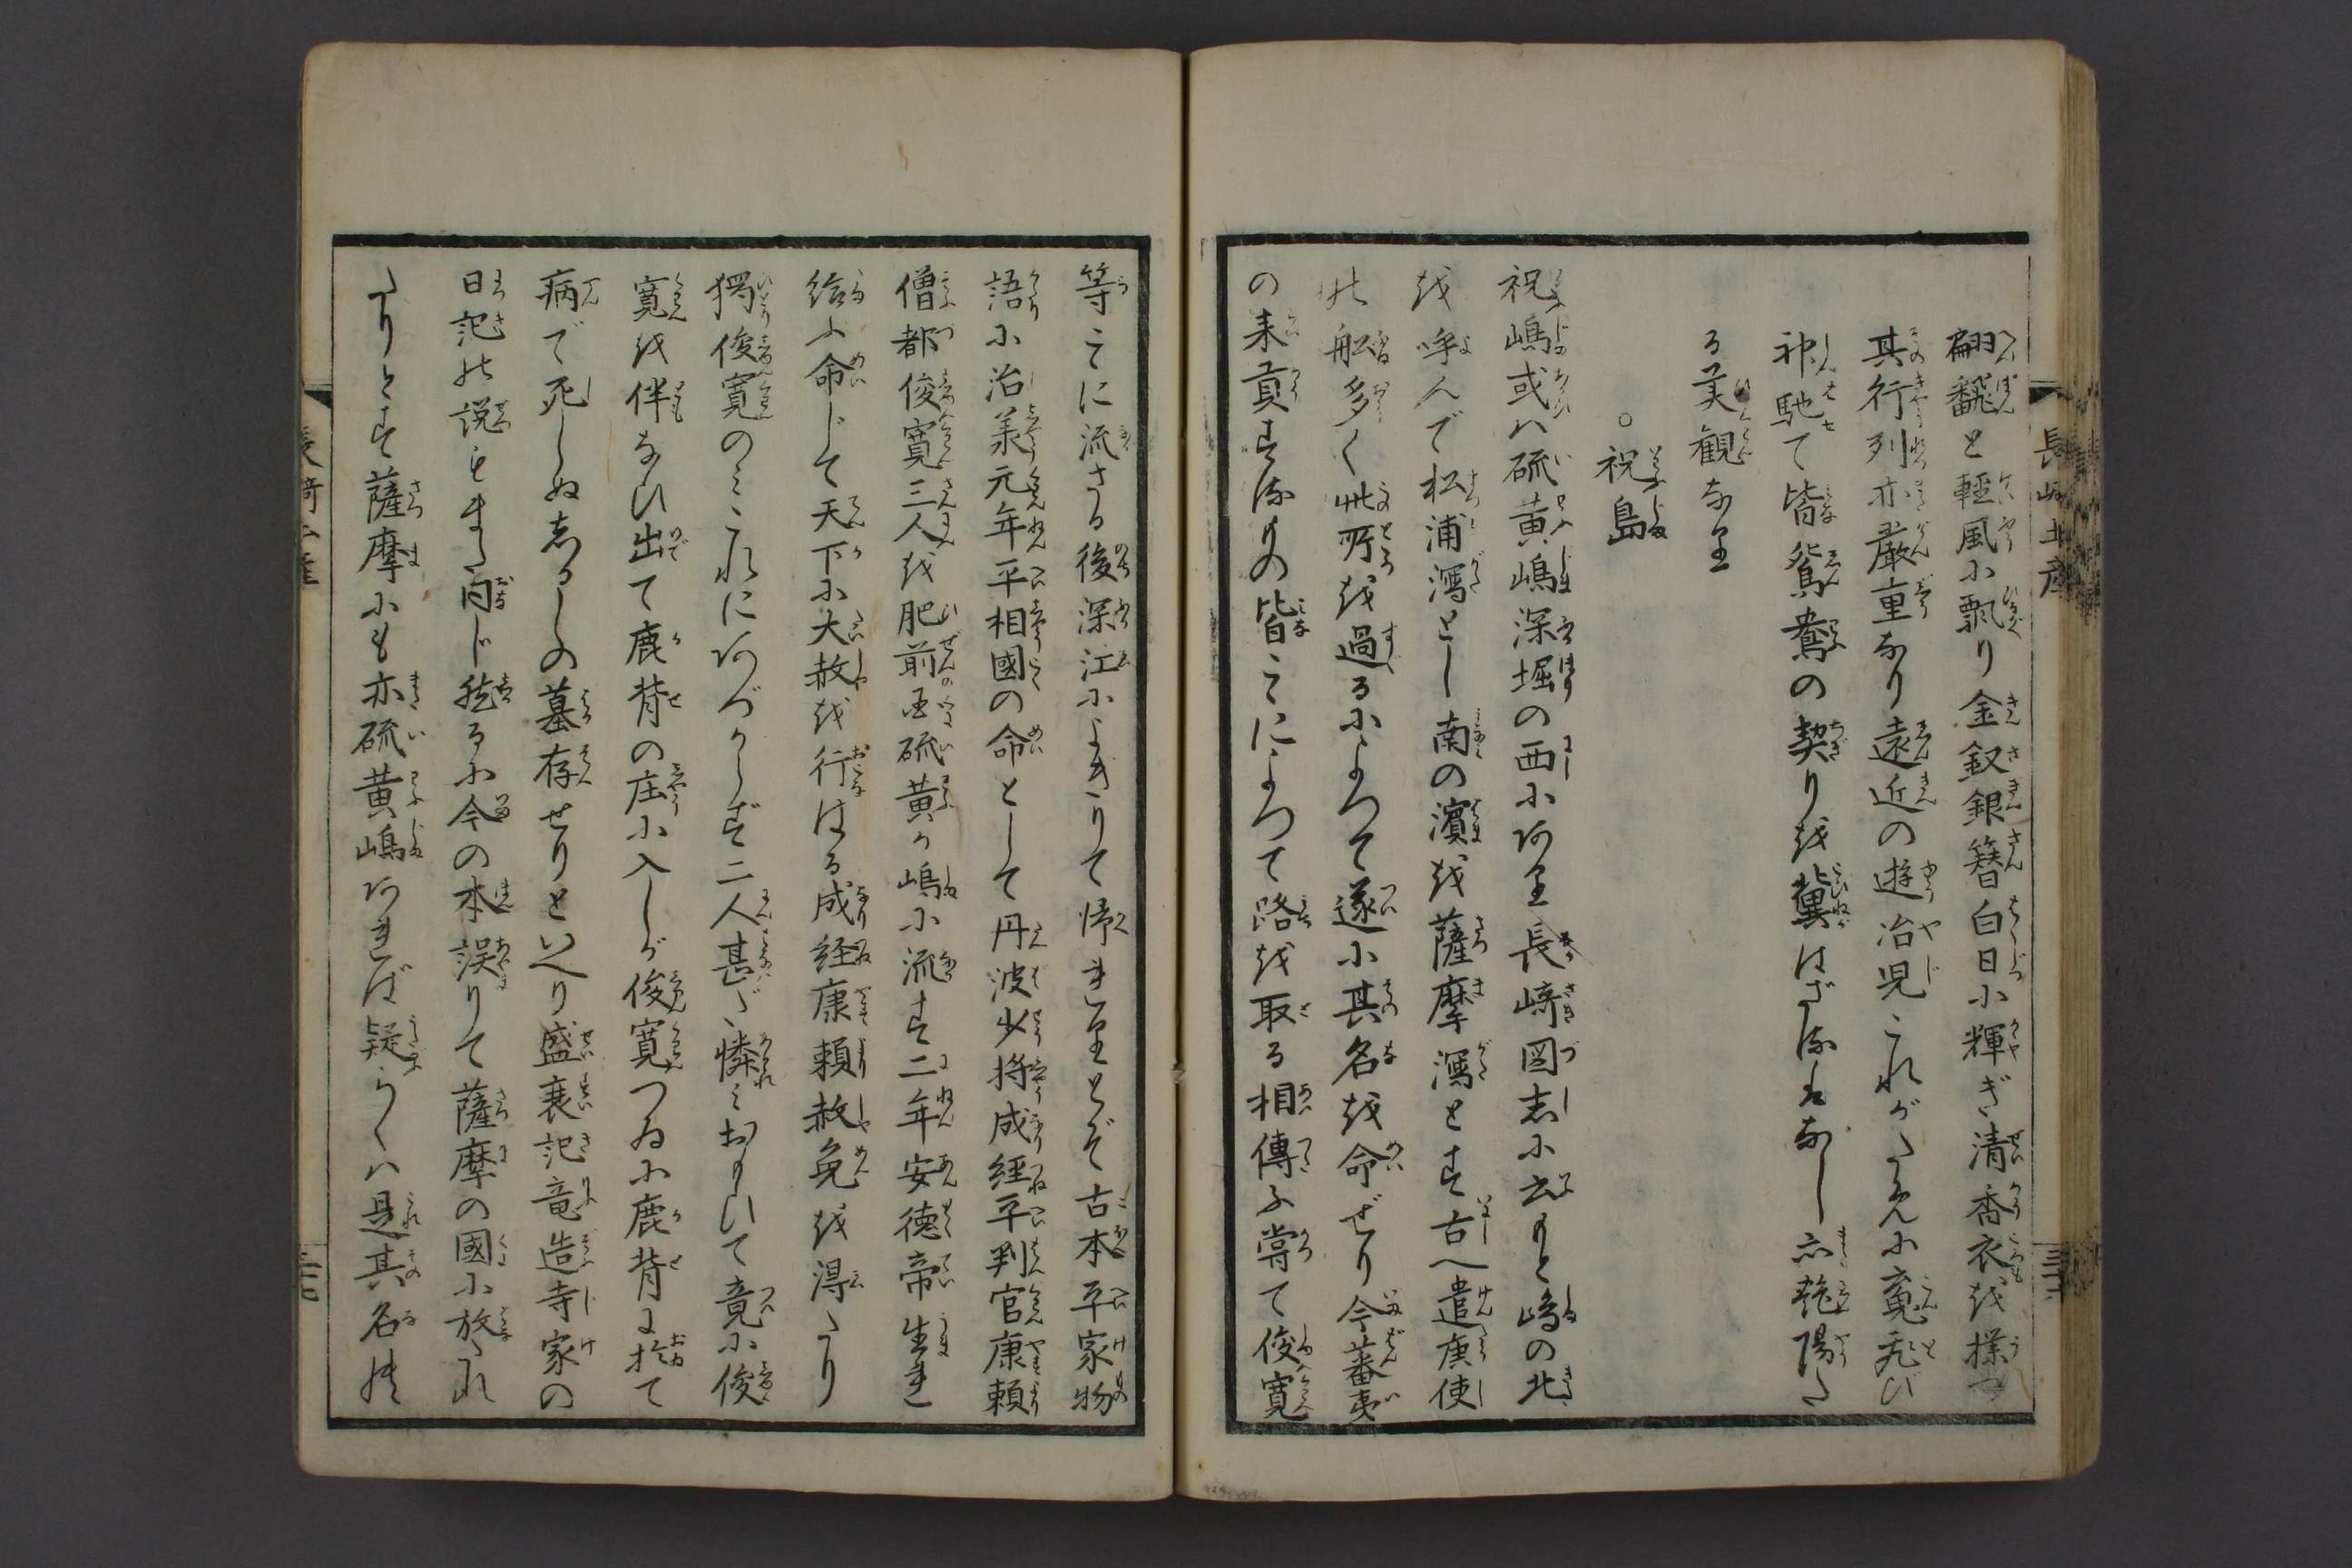 長崎土産
翩飜と輕風に飄り金釵銀簪白日に輝ぎ清香衣を撲つ
其行列亦嚴重なり遠近の遊冶児これがために魂飛び
神馳て皆鴛鴦の契りを冀はざるはなし亦艶陽た
る美観なり
○祝島
祝嶋或ハ硫黄嶋深堀の西にあり長﨑図志に云もと嶋の北
を呼んで松浦瀉とし南の濵を薩摩瀉とす古へ遣唐使
の船多く此所を過るによつて遂に其名を命ぜり今蕃夷
の来貢するもの皆こゝによつて路を取る相傳ふ嘗て俊寛
等こゝに流さる後深江によぎりて帰れりとぞ古本平家物
語に治承元年平相國の命として丹波少将成経平判官康頼
僧都俊寛三人を肥前国硫黄か嶋に流す二年安徳帝生れ
給ふ命じて天下に大赦を行はる成経康頼赦免を得たり
獨俊寛のミこれにあづからず二人甚だ憐ミおもひて竟に俊
寛を伴なひ出て鹿背の庄に入しが俊寛つゐに鹿背に於て
病で死しぬしるしの墓存せりといへり盛衰記竜造寺家の
日記の説もまた同じ然るに今の本誤りて薩摩の國に放れ
たりとす薩摩にも亦硫黄嶋あれば疑らくハ是其名の